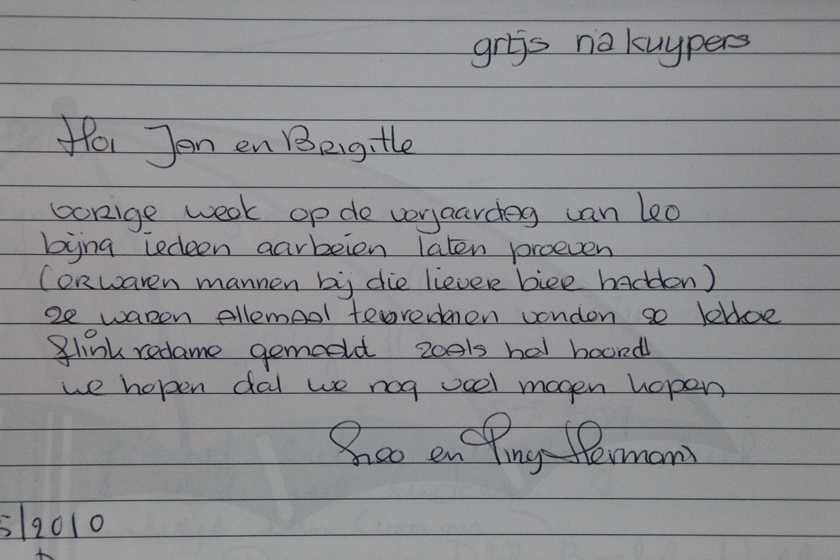 grtjs na kuypers
Hoi Jan en Brigitte
vorige week op de verjaardag van Leo
bijna iedeen aarbeien laten proeven
(er waren mannen bij die liever bier hadden)
ze waren allemaal tevredenen vonden ze lekker
flink reclame gemaakt zoals het hoord
we hopen dat we nog veel mogen kopen
Leo en Piny Hermans
5/2010